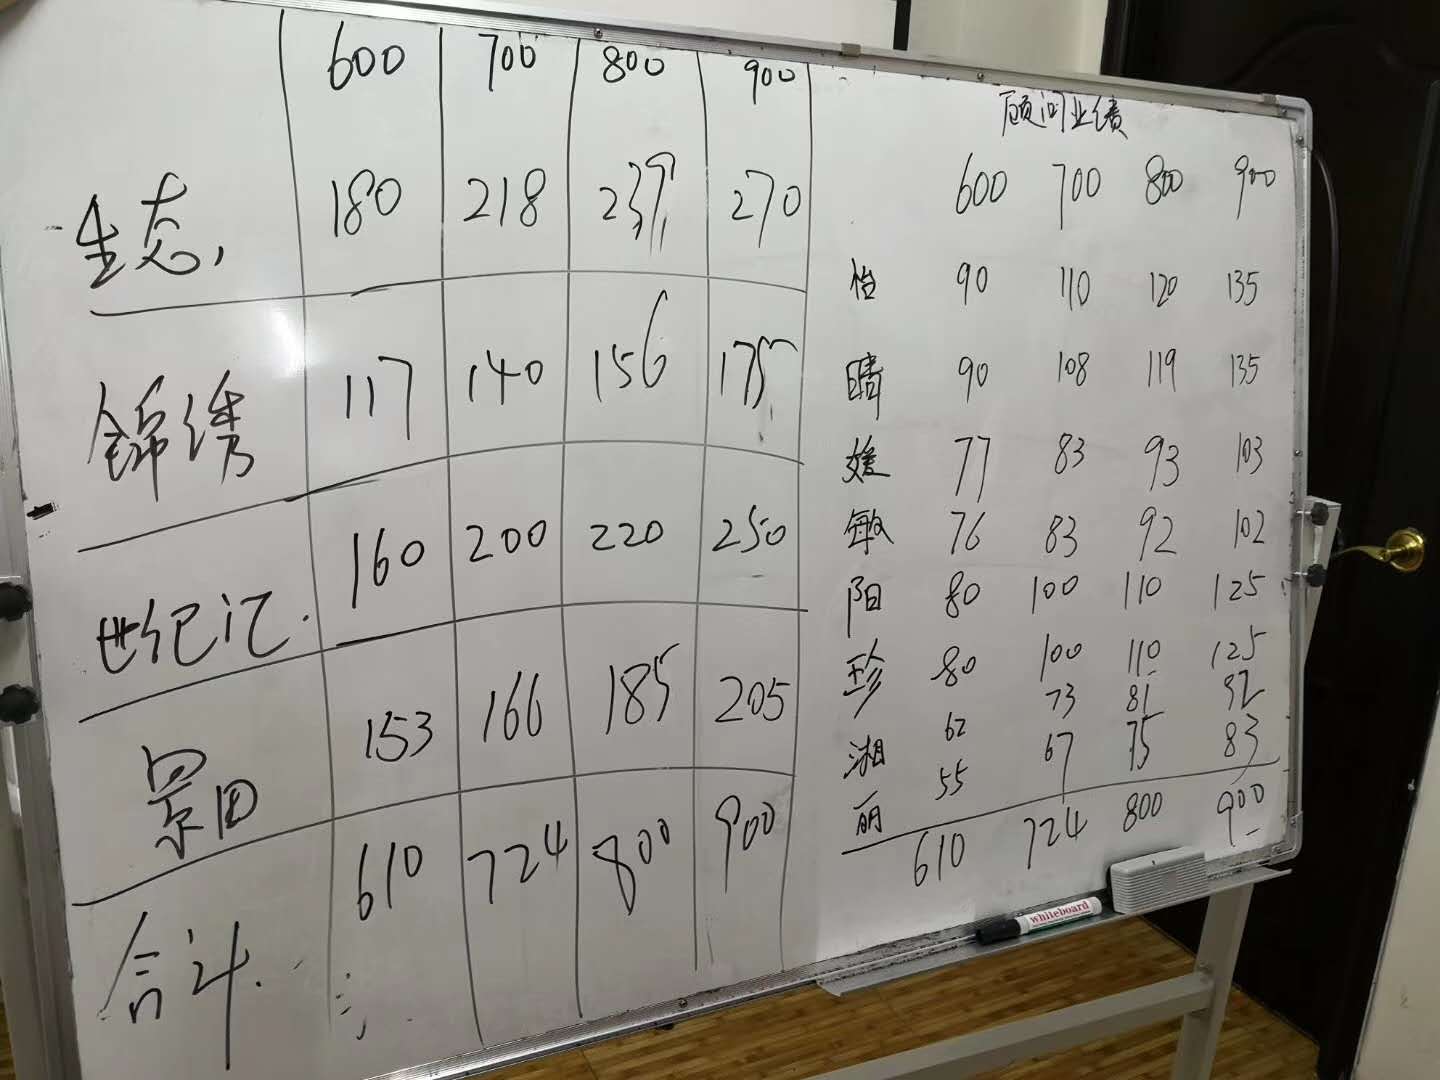 600 700 800 900
生态, 180 218 239 270
锦绣 117 140 156 175
世纪汇. 160 200 220 250
景田 153 166 185 205
合计. 610 724 800 900
顾问业绩
600 700 800 900
怡 90 110 120 135
晴 90 108 119 135
媛 77 83 93 103
敏 76 83 92 102
阳 80 100 110 125
珍 80 100 110 125
湘 62 73 81 92
丽 55 67 75 83
610 724 800 900
whiteboard